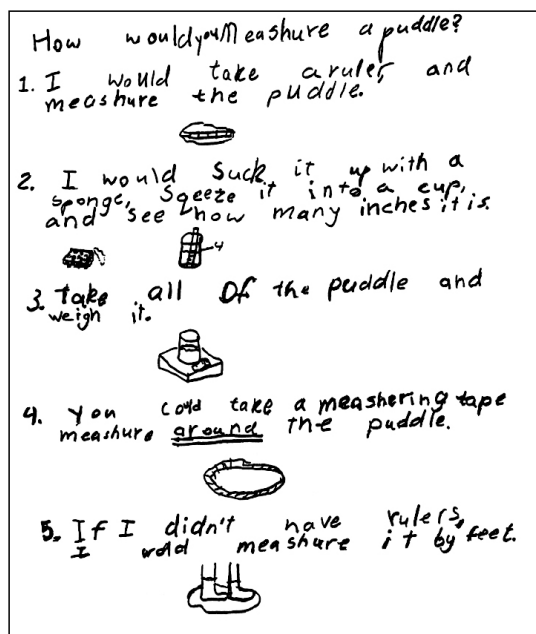 How would you Meashure a puddle?
1. I would take a ruler, and
meashure the puddle.
2. I would suck it up with a
sponge, sqeeze it into a cup,
and see how many inches it is.
4
3. take all Of the puddle and
weigh it.
4. you could take a meashering tape
meashure around the puddle.
5. If I didn't have rulers,
I wold meashure it by feet.